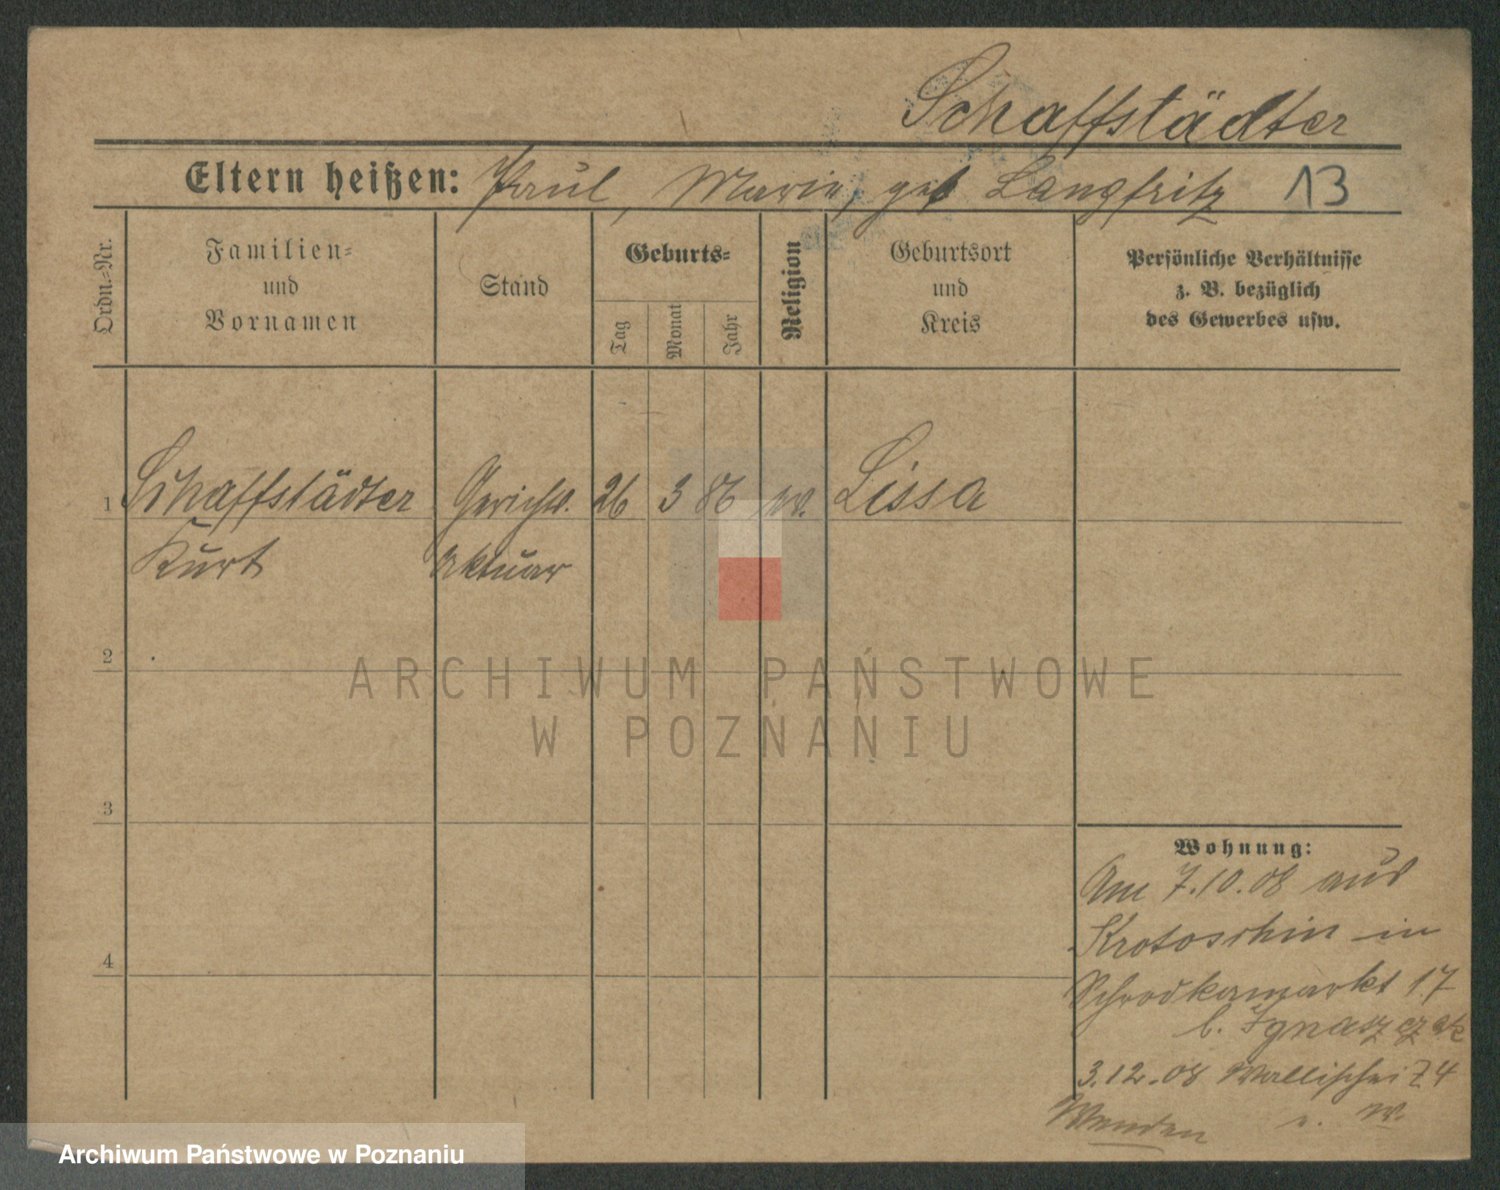 Schaffstädter
Eltern heißen: Paul, Marie, geb Langfritz 13
Ordn.-Nr.
Familien-
und
Vornamen
Stand
Geburts-
Tag
Monat
Jahr
Religion
Geburtsort
und
Kreis
Persönliche Verhältnisse
z. B. bezüglich
des Gewerbes usw.
1 Schaffstädter Gerichts. 26 3 86 ev. Lissa
Kurt Aktuar
2
3
4
ARCHIWUM PAŃSTWOWE
W POZNANIU
Wohnung:
Am 7.10.08 aus
Krotoschin in
Schrodkamarkt 17
b. Ignaszczak
3.12.08 Wallischei 74
Archiwum Państwowe w Poznaniu